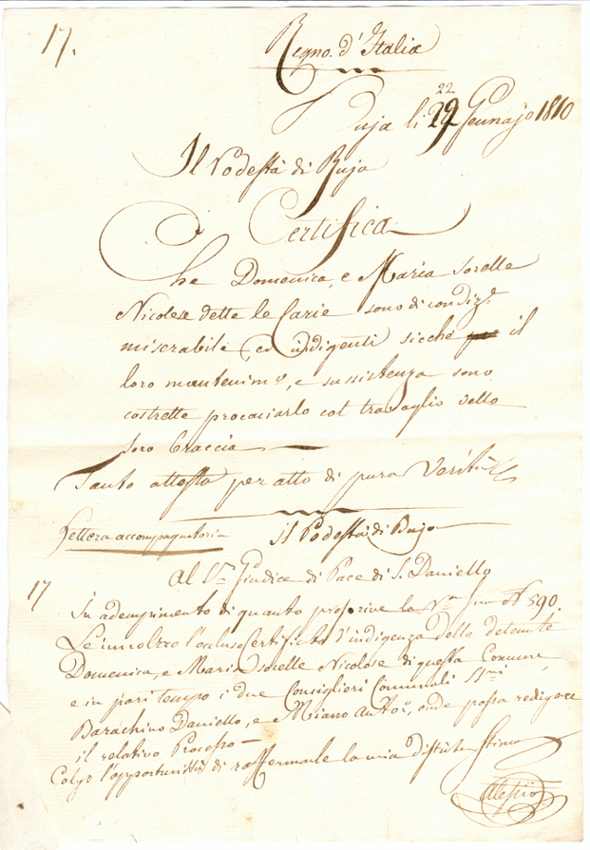 17.
Regno d'Italia
22
Buja li 22 Gennajo 1810
Il Podestà di Buja
Certifica
Che Domenica, e Maria sorelle
Nicolose dette le Carie sono di condize
miserabile, ed indigenti sicchè il
loro mantenimo, e sussistenza sono
costrette procaciarlo col travaglio delle
loro braccia
Tanto attesta per atto di pura Verità
Lettera accompagnatoria
il Podestà di Buja
Al Sr Giudice di Pace di S. Daniello
17
In adempimento di quanto proscrive la No 590.
Le innoltro l'occluso Certificato l'indigenza delle detenute
Domenica, e Maria sorelle Nicolose di questa Comune,
e in pari tempo i due Consiglieri Comunali Sri
Barachino Daniello, e Miano Anto, onde possa redigere
il relativo Processo
Colgo l'opportunità di raffermarle la mia distinta stima
Alessio